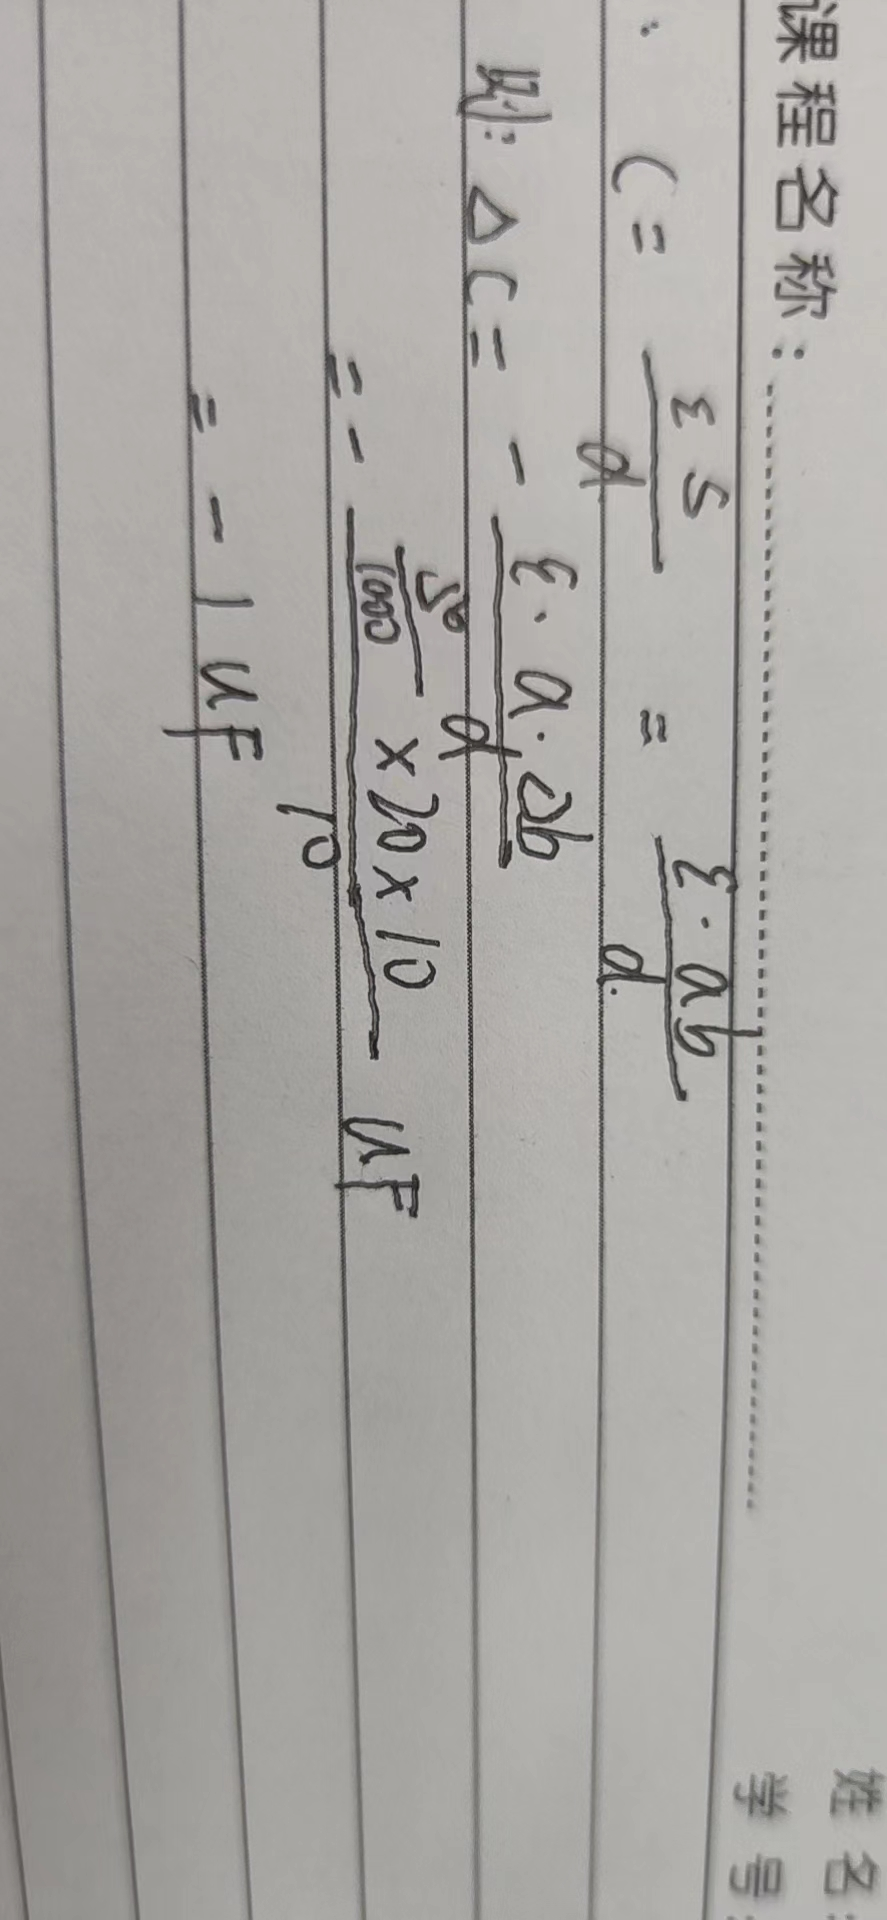 课程名称:
姓名:
学号:
∴ C = εS/d = ε·ab/d.
则: ΔC = - ε·a·Δb/d
= - (50/1000 × 20 × 10)/10 uF
= - 1 uF